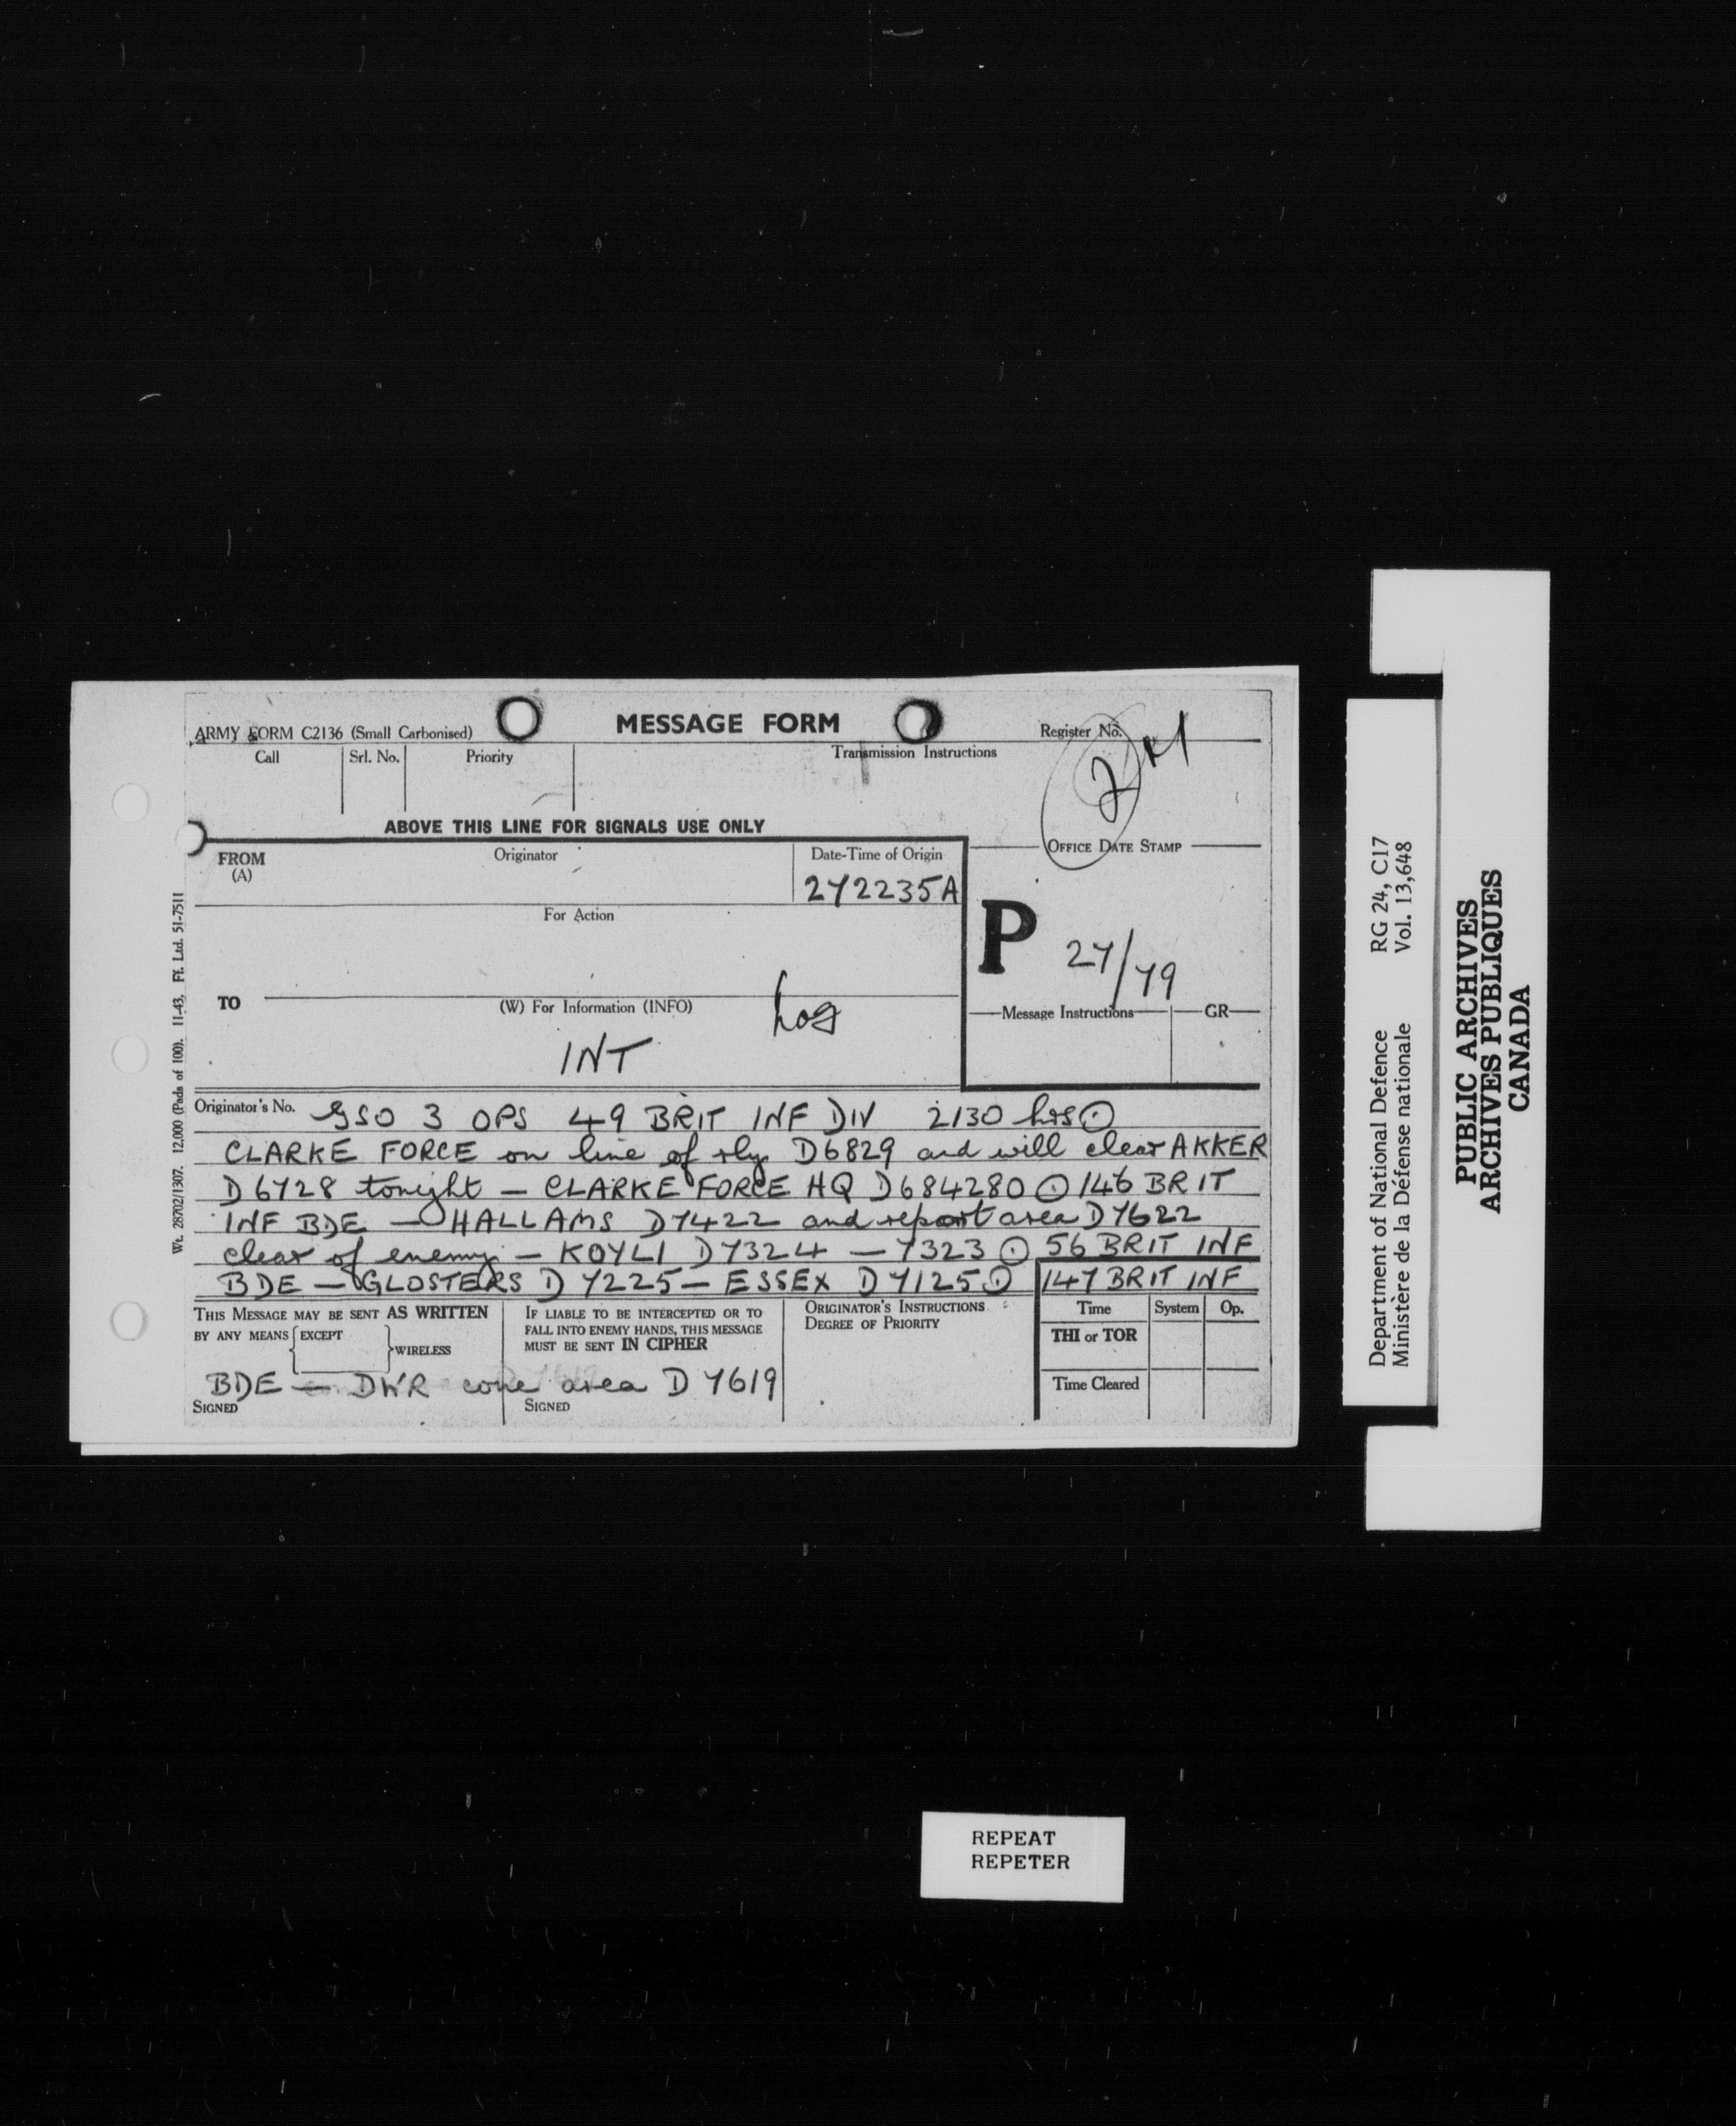 ARMY FORM C2136 (Small Carbonised)
MESSAGE FORM
Register No.
Call
Srl. No.
Priority
Transmission Instructions
2
ABOVE THIS LINE FOR SIGNALS USE ONLY
OFFICE DATE STAMP
FROM
(A)
Originator
Date-Time of Origin
272235A
For Action
P 27/79
TO
(W) For Information (INFO)
Log
INT
Message Instructions
GR
Originator's No. GSO 3 OPS 49 BRIT INF DIV 2130 hrs ⊙
CLARKE FORCE on line of rly D6829 and will clear AKKER
D6728 tonight — CLARKE FORCE HQ D684280 ⊙ 146 BRIT
INF BDE — HALLAMS D7422 and report area D7622
clear of enemy — KOYLI D7324 — 7323 ⊙ 56 BRIT INF
BDE — GLOSTERS D7225 — ESSEX D7125 ⊙ 147 BRIT INF
THIS MESSAGE MAY BE SENT AS WRITTEN
BY ANY MEANS { EXCEPT } WIRELESS
IF LIABLE TO BE INTERCEPTED OR TO
FALL INTO ENEMY HANDS, THIS MESSAGE
MUST BE SENT IN CIPHER
ORIGINATOR'S INSTRUCTIONS
DEGREE OF PRIORITY
Time
System
Op.
THI or TOR
Time Cleared
BDE — DWR conc area D7619
SIGNED
SIGNED
Wt. 28702/1307. 12,000 (Pads of 100). 11-43. Ff. Ltd. 51-7511
Department of National Defence RG 24, C17
Ministère de la Défense nationale Vol. 13,648
PUBLIC ARCHIVES
ARCHIVES PUBLIQUES
CANADA
REPEAT
REPETER